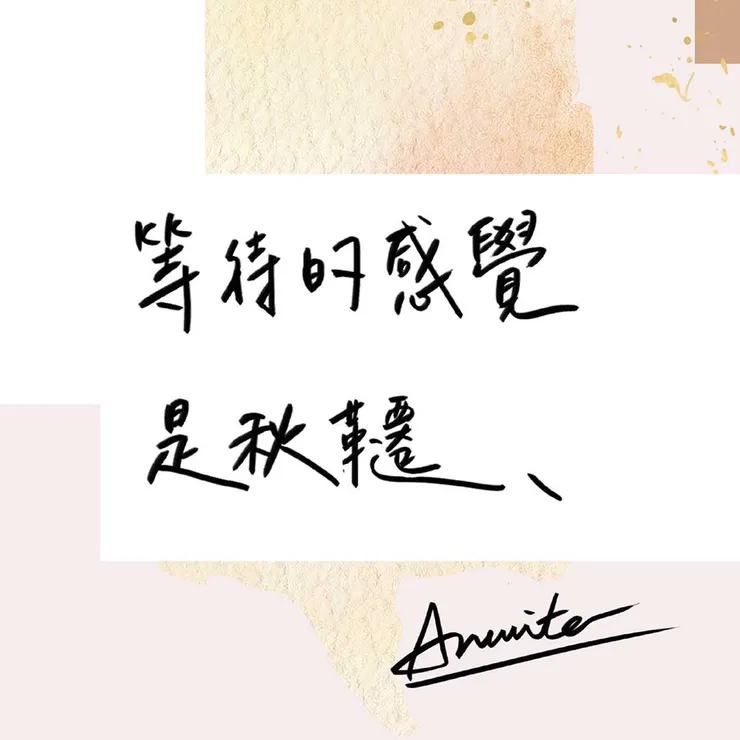 等待的感覺
是秋韆、
Anwriter